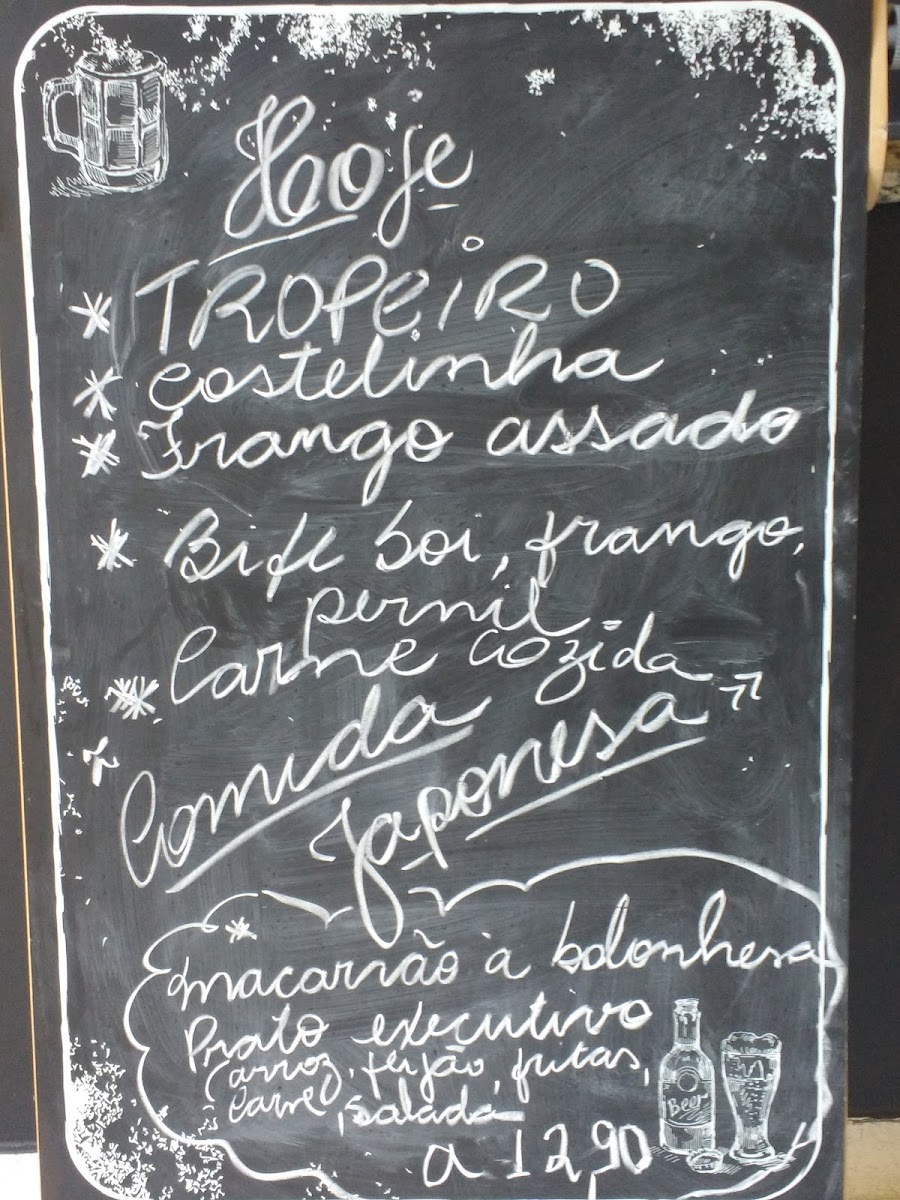 Hoje
* TROPEiRO
* Costelinha
* Frango assado
* Bife boi, frango,
pernil
* Carne cozida
Comida
Japonesa
*
Macarrão à bolonhesa
Prato executivo
(arroz, feijão, fritas,
carne, salada
a 12,90
Beer